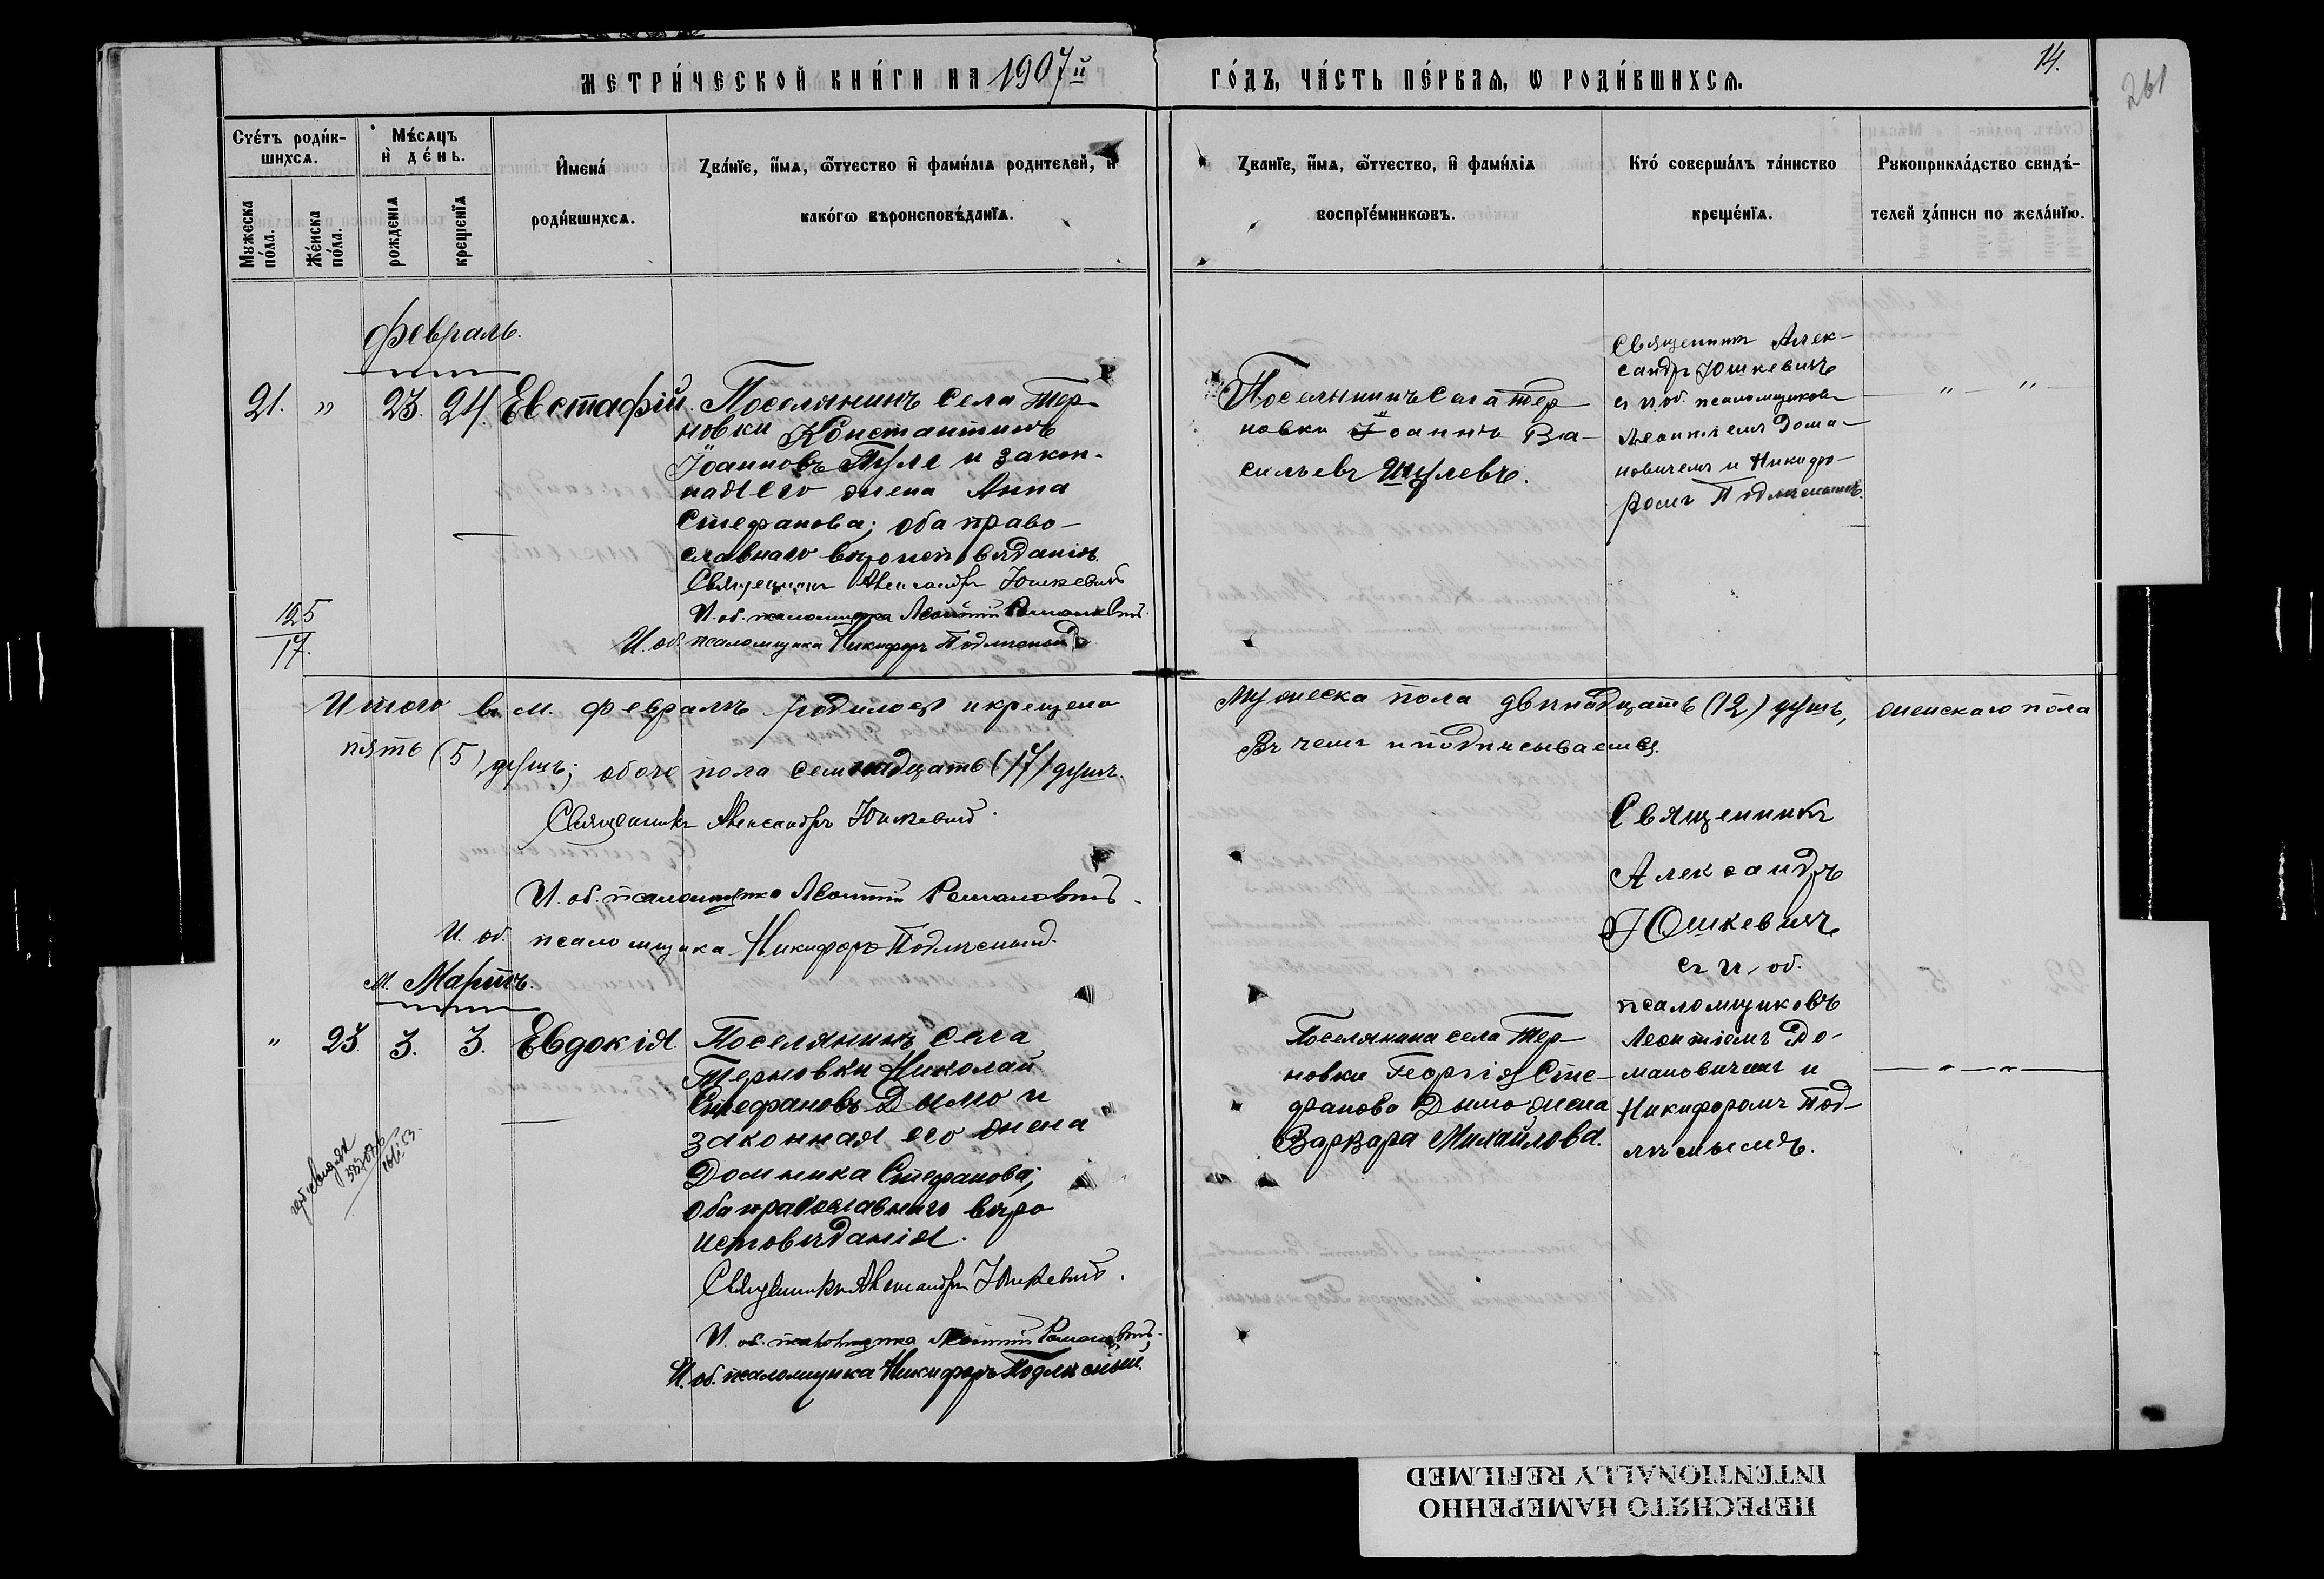 МЕТРИ́ЧЕСКОЙ КНИ́ГИ НА 1907й
ГО́ДЪ, ЧА́СТЬ ПЕ́РВАѦ, Ѡ РОДИ́ВШИХСѦ.
14.
261
Сче́тъ роди́в-
шихсѧ.
Мꙋжеска
по́ла.
Же́нска
по́ла.
Мѣ́сѧцъ
и҆ де́нь.
рожденїѧ
крещенїѧ
И҆мена́
роди́вшихсѧ.
Зва́нїе, и҆́мѧ, ѻ҆́тчество и҆ фами́лїѧ родителей, и҆
како́гѡ вѣроисповѣ́данїѧ.
Зва́нїе, и҆́мѧ, ѻ҆́тчество, и҆ фами́лїѧ
воспрїе́мникѡвъ.
Кто́ соверша́лъ та́инство
креще́нїѧ.
Рꙋкоприкла́дство свидѣ́-
телей за́писи по жела́нїю.
Февраль.
21. " 23. 24. Евстафій.
Поселянинъ села Тер-
новки Константинъ
Іоанновъ Пуле и закон-
ная его жена Анна
Стефанова; оба право-
славнаго вѣроисповѣданія.
Священникъ Александръ Юшкевичъ
И. об. псаломщика Леонтій Романовичъ.
И. об. псаломщика Никифоръ Подлѣсный
125
17.
Поселянинъ села Тер-
новки Іоаннъ Ва-
сильевъ Шулевъ.
Священникъ Алек-
сандръ Юшкевичъ
съ и об. псаломщиковъ
Леонтіемъ Дома-
новичемъ и Никифо-
ромъ Подлѣснымъ.
" "
Итого въ м. февралѣ родилось и крещено
Мужеска пола двѣнадцать (12) душъ, женскаго пола
пять (5) душъ; обоего пола семнадцать (17) душъ.
Въ чемъ и подписываемся.
Священникъ Александръ Юшкевичъ.
И. об. псаломщика Леонтій Романовичъ.
И. об. псаломщика Никифоръ Подлѣсный.
М. Мартъ.
" 23. 3. 3. Евдокія.
Поселянинъ села
Терновки Николай
Стефановъ Дымо и
законная его жена
Домника Стефанова;
оба православнаго вѣро
исповѣданія.
Священникъ Александръ Юшкевичъ.
И. об. псаломщика Леонтій Романовичъ.
И. об. псаломщика Никифоръ Подлѣсный.
Поселянина села Тер-
новки Георгія Сте-
фанова Дымо жена
Варвара Михайлова.
Священникъ
Александръ
Юшкевичъ
съ и. об.
псаломщиковъ
Леонтіемъ До-
мановичемъ и
Никифоромъ Под-
лѣснымъ.
" "
ПЕРЕСНЯТО НАМЕРЕННО
INTENTIONALLY REFILMED